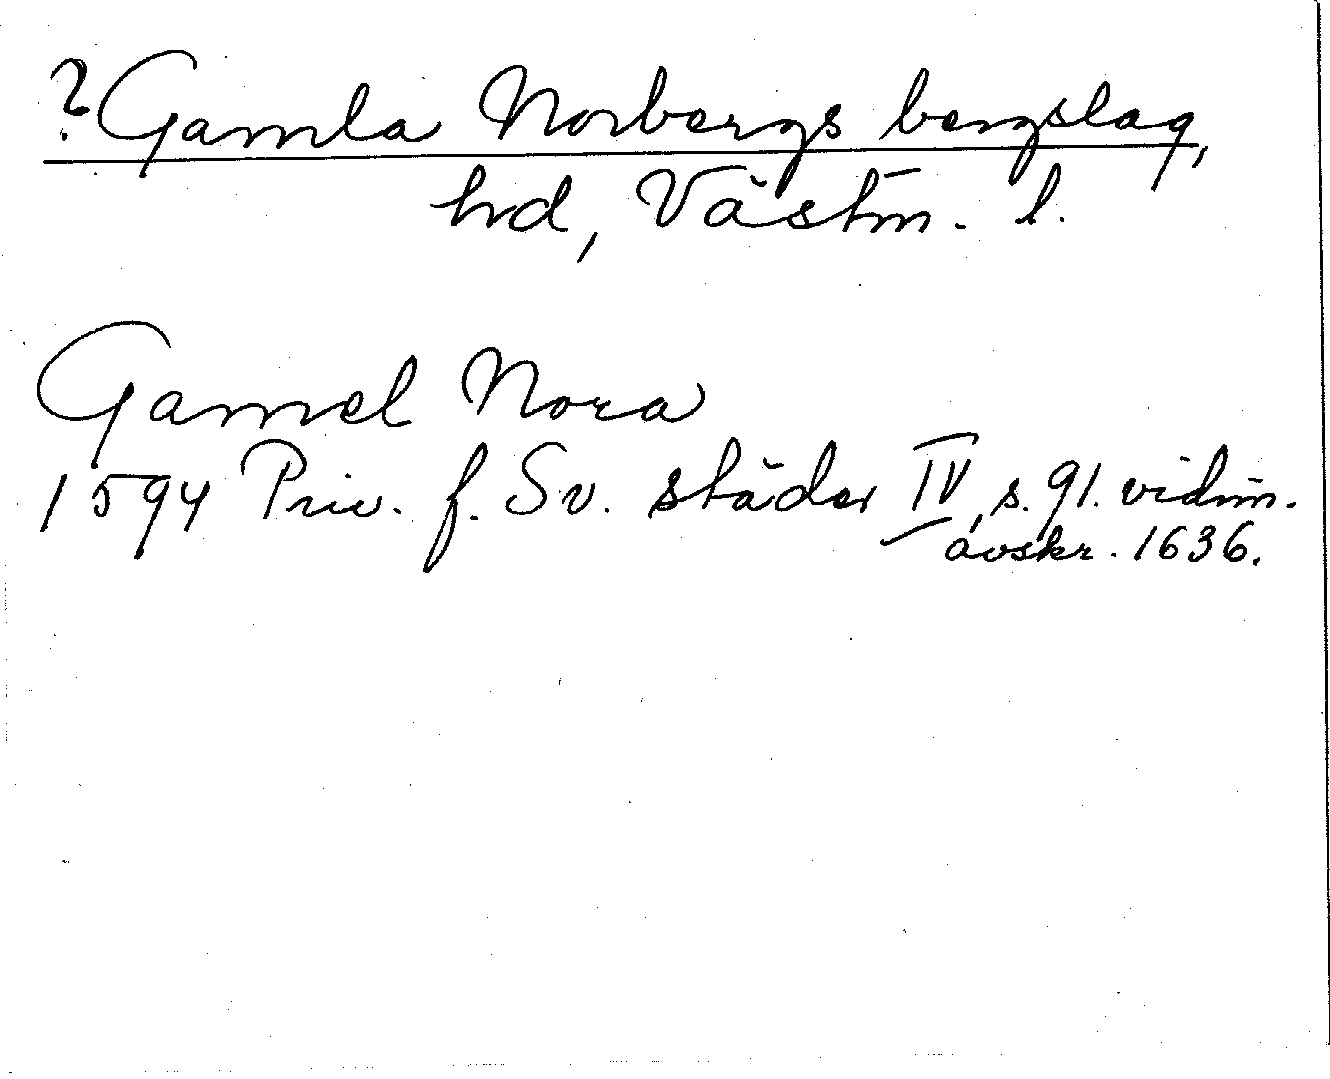 ? Gamla Norbergs bergslag,
hrd, Västm. l.
Gamel Nora
1594 Priv. f. Sv. städer IV, s. 91. vidim.
avskr. 1636.